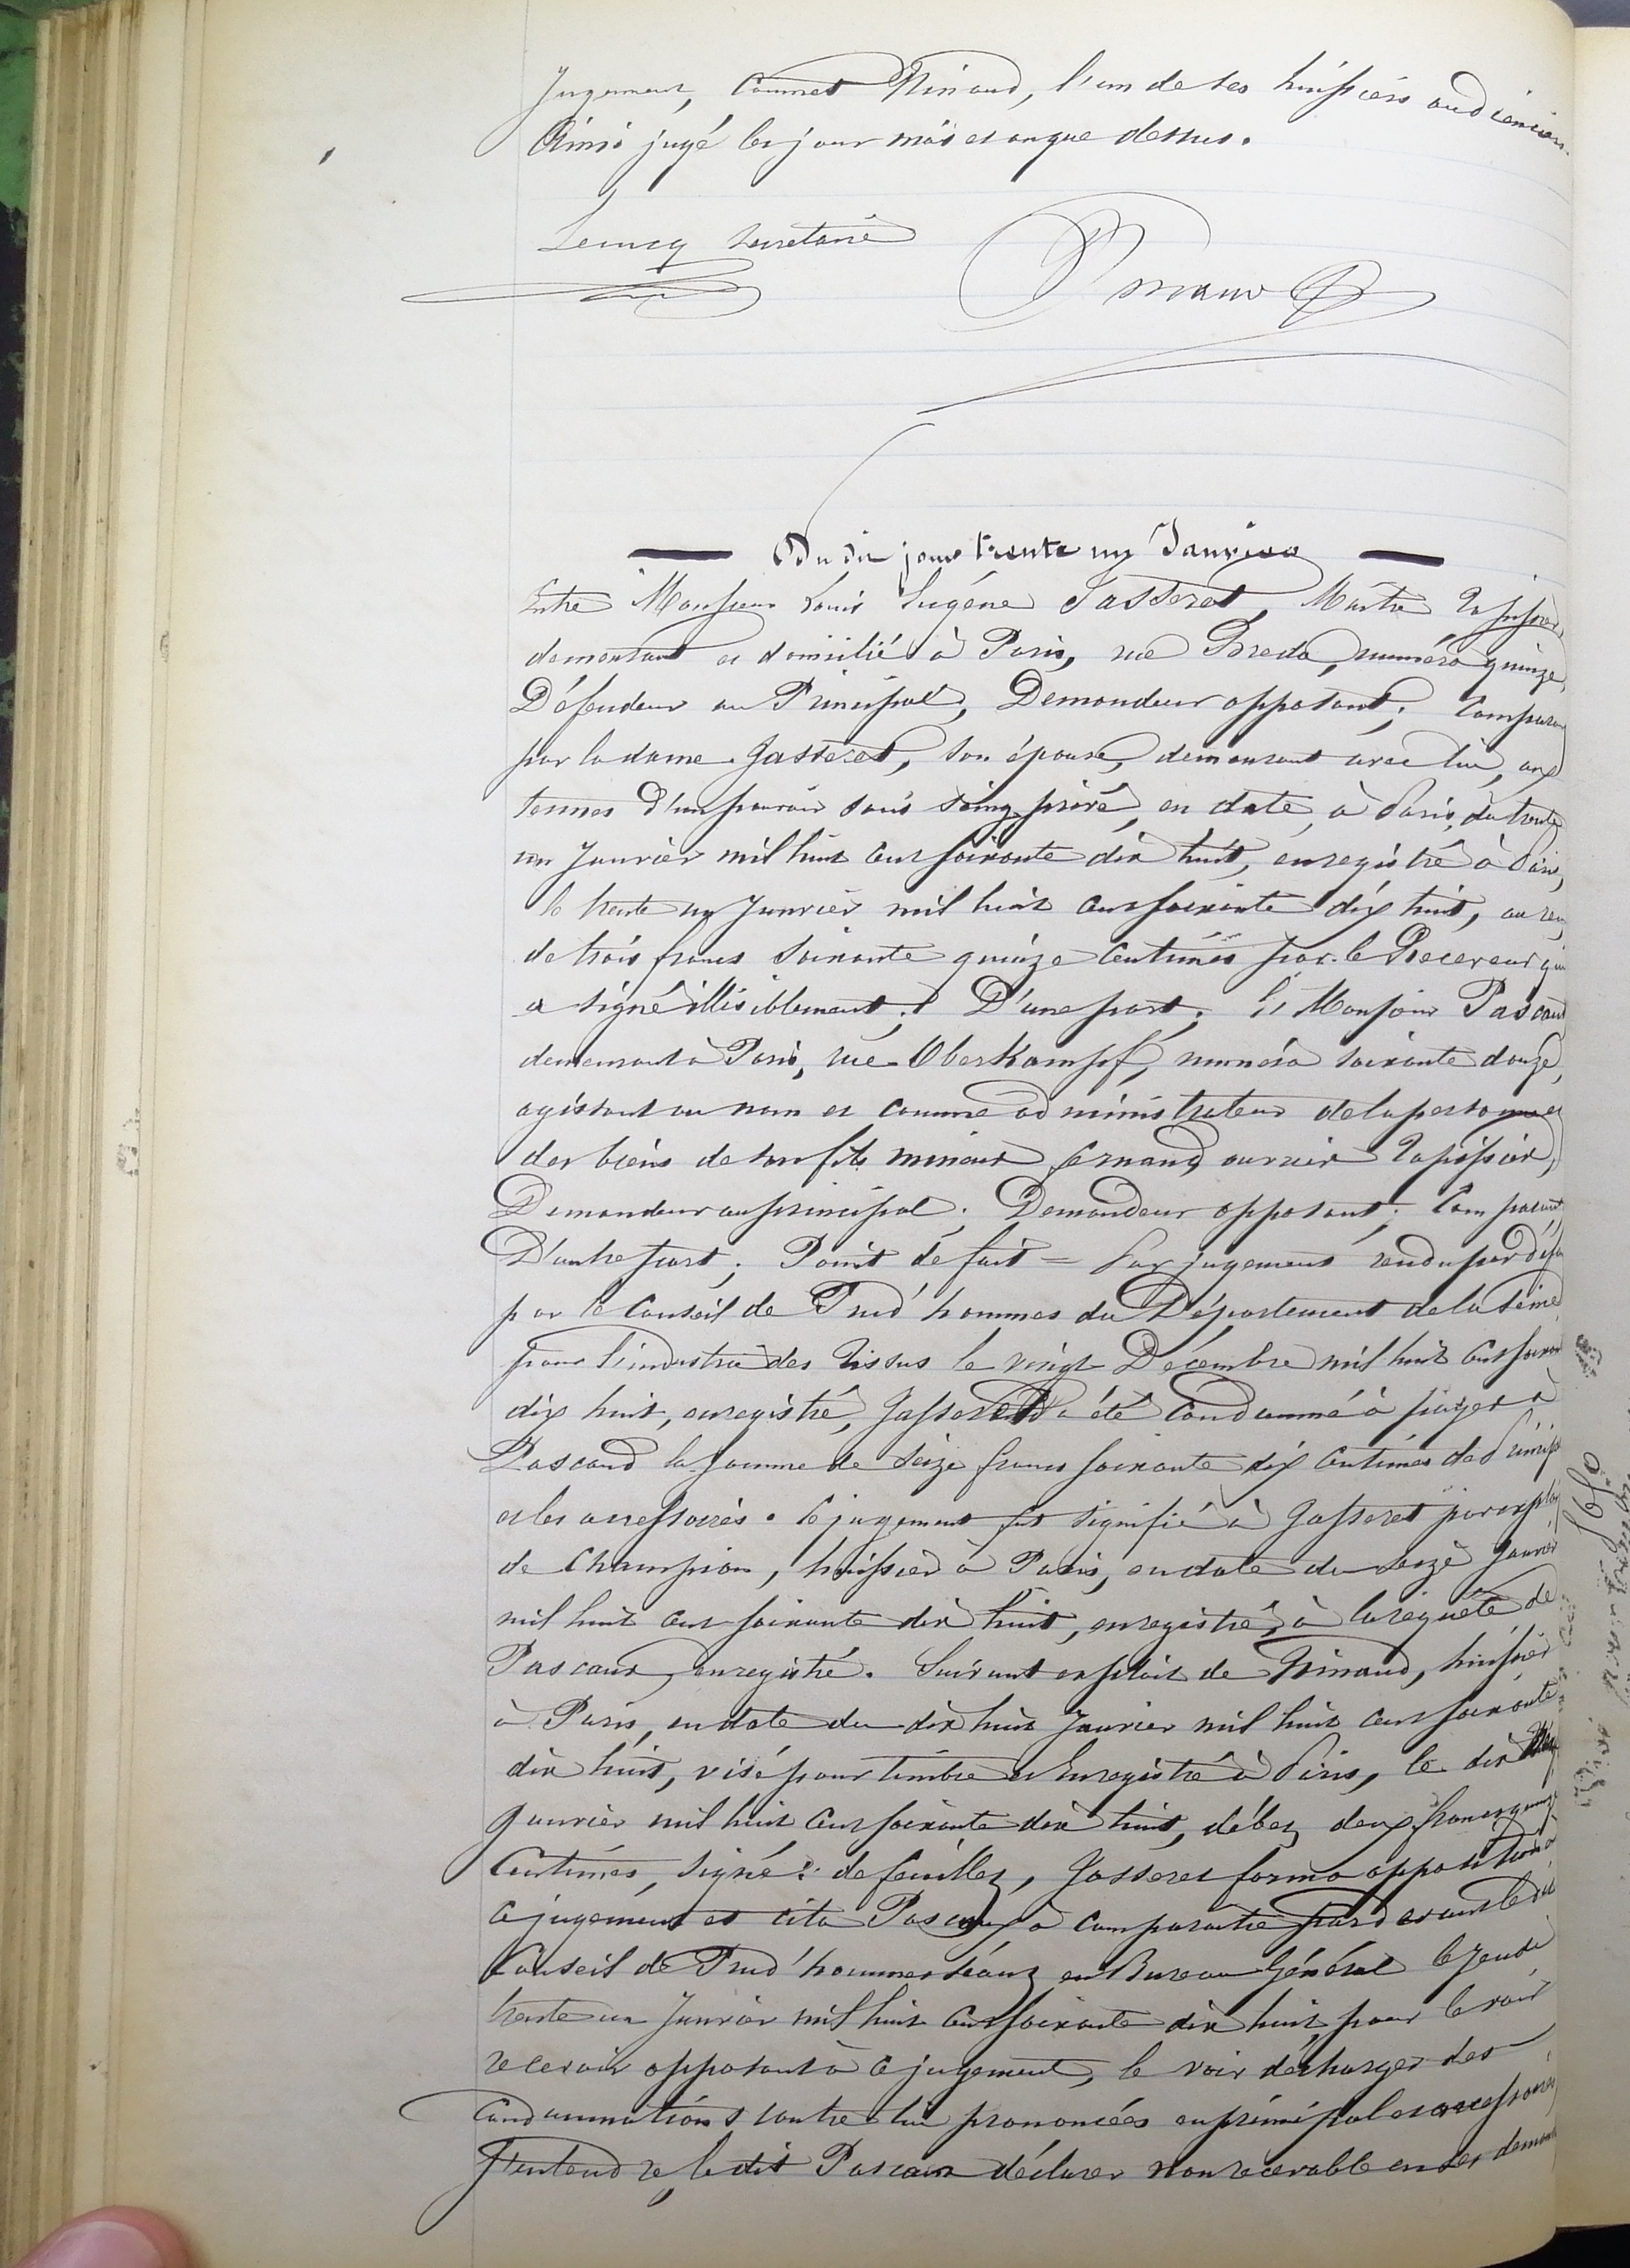 jugement, Commet Ninaud, l'un de ses huissiers audienciers.
Ainsi jugé les jour mois et an que dessus.
Lecucq secrétaire
Du dit jour trente un Janvier
Entre Monsieur Louis Eugène Jasseret, Maitre Tapissier,
demeurant et domicilié à Paris, rue Breda, numéro quinze,
Défendeur au Principal, Demandeur opposant; Comparant
par la dame Jasseret, son épouse, demeurant avec lui, aux
termes d'un pouvoir sous seing privé, en date, à Paris, du trente
un Janvier mil huit cent soixante dix huit, enregistré à Paris,
le trente un Janvier mil huit cent soixante dix huit, au reçu
de trois francs soixante quinze centimes par le Receveur qui
a signé illisiblement; D'une part; Et Monsieur Pascaud
demeurant à Paris, rue Oberkampf, numéro soixante douze,
agissant au nom et comme administrateur de la personne et
des biens de son fils mineur Fernand, ouvrier Tapissier,
Demandeur au principal; Demandeur opposant; Comparant
D'autre part; Point de fait = Par jugement rendu par défaut
par le Conseil de Prud'hommes du Département de la Seine
pour l'industrie des Tissus le vingt Décembre mil huit cent soixante
dix huit, enregistré, Jasseret a été condamné à payer à
Pascaud la somme de seize francs soixante dix centimes de Principal
et les accessoires. Ce jugement fut signifié à Jasseret par exploit
de Champion, huissier à Paris, en date du seize Janvier
mil huit cent soixante dix huit, enregistré, à la requête de
Pascaud, enregistré. Suivant exploit de Ninaud, huissier
à Paris, en date du dix huit Janvier mil huit cent soixante
dix huit, visé pour timbre et Enregistré à Paris, le dix
Janvier mil huit cent soixante dix huit, débet deux francs quinze
Centimes, signé: de feuillez, Jasseret forma opposition à
ce jugement et cita Pascaud à comparaitre par devant le dit
Conseil de Prud'hommes séant en Bureau Général le Jeudi
trente un Janvier mil huit cent soixante dix huit, pour le voir
recevoir opposant à ce jugement, le voir décharger des
Condamnations contre lui prononcées en principal et accessoires
s'entendre, le dit Pascaud déclarer non recevable en ses demandes